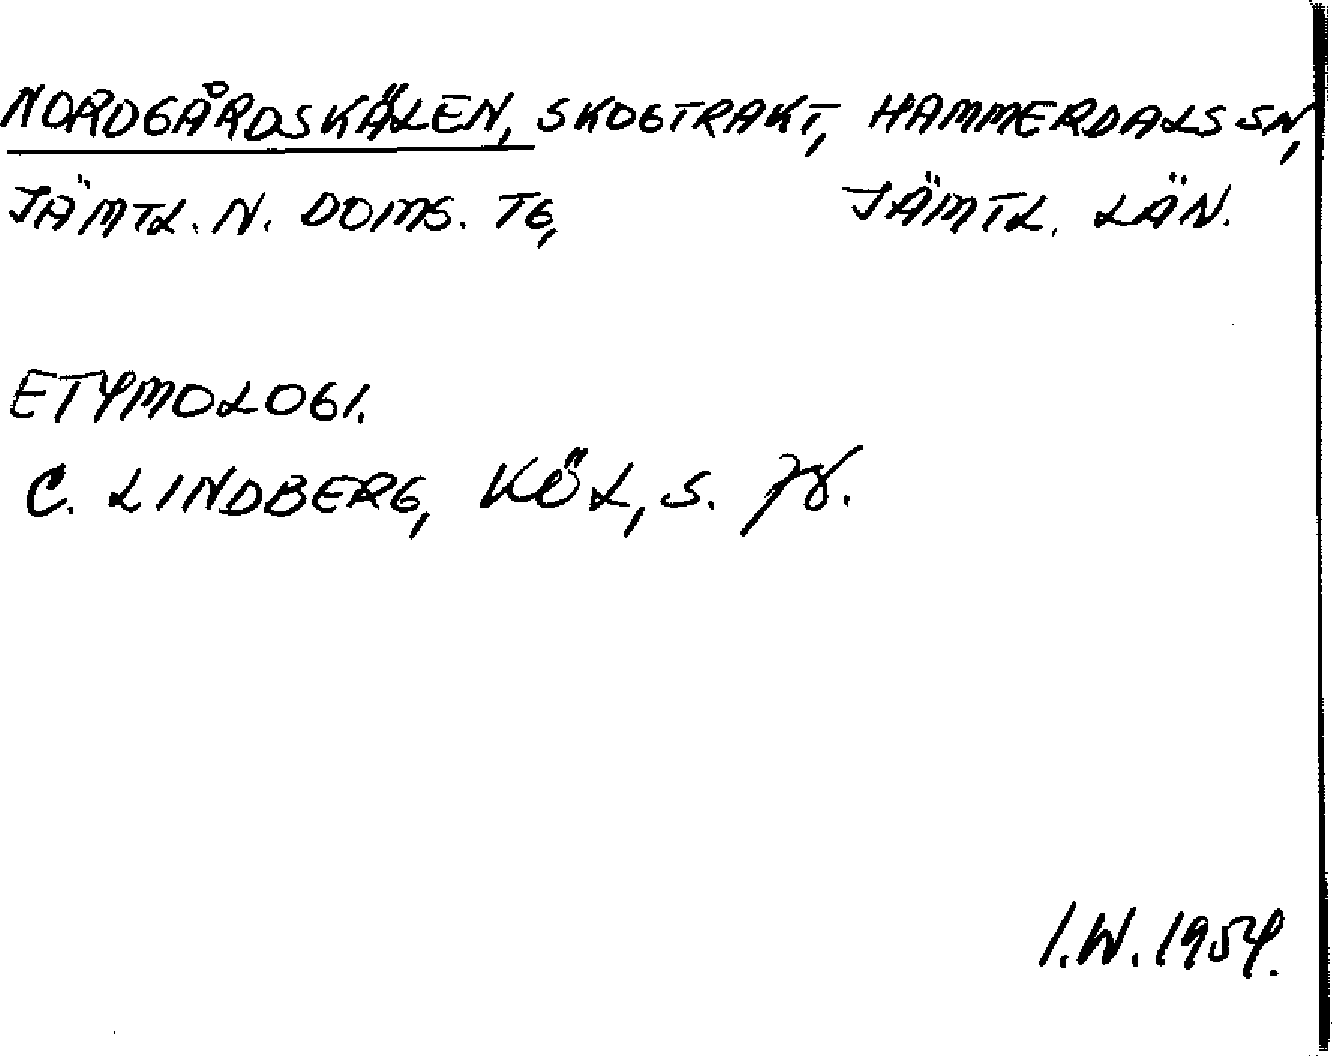 NORDGÅRDSKÄLEN, SKOGTRAKT, HAMMERDALS SN,
JÄMTL. N. DOMS. TG, JÄMTL. LÄN.
ETYMOLOGI.
C. LINDBERG, KÖL, S. 78.
I.W. 1954.